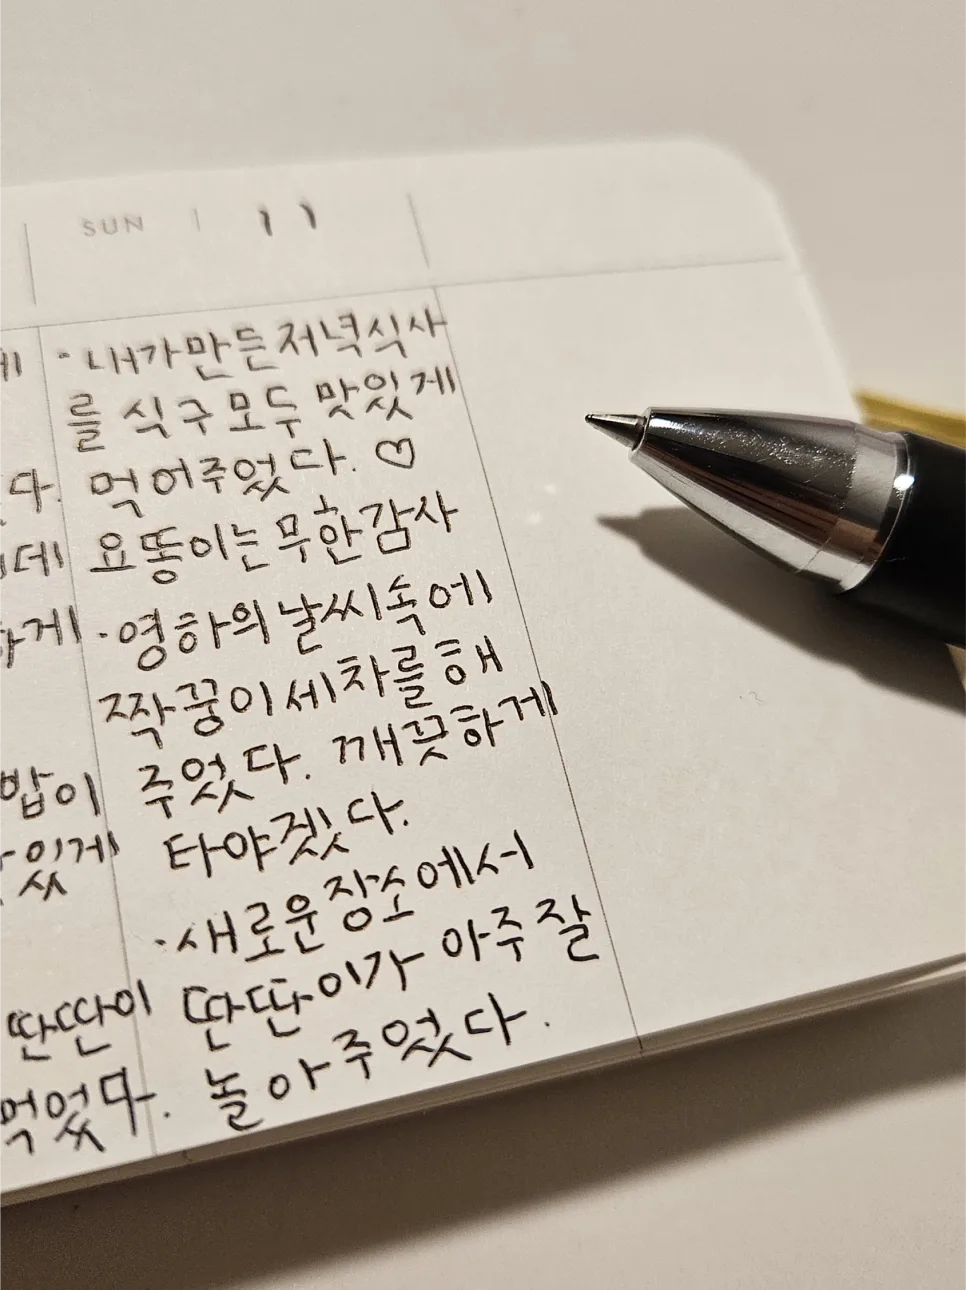 SUN 11
· 내가 만든 저녁식사
를 식구 모두 맛있게
먹어주었다. ♡
요똥이는 무한감사
· 영하의 날씨속에
짝꿍이 세차를 해
주었다. 깨끗하게
타야겠다.
· 새로운 장소에서
딴딴이가 아주 잘
놀아주었다.
게
다.
데
하게
밥이
있게
딴딴이
먹었다.